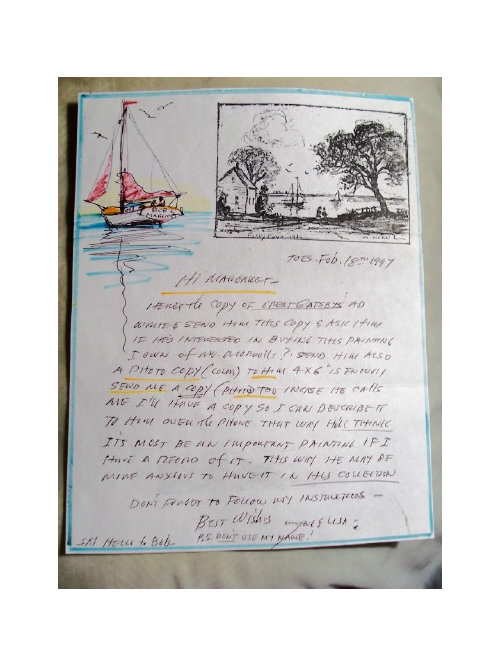 BOB
MARGRET
TUES. Feb. 18th 1997
Hi MARGARET -
HERE'S the COPY OF GREAT GATSBY'S AD
WRITE & SEND HIM THIS COPY & ASK HIM
IF HE'S INTERESTED IN BUYING THIS PAINTING
I OWN OF Mr. ? SEND HIM ALSO
A PHOTO COPY (COLOR) TO HIM 4x6" IS ENOUGH
SEND ME A COPY (PHOTO) TOO INCASE HE CALLS
ME I'LL HAVE A COPY SO I CAN DESCRIBE IT
TO HIM OVER the PHONE THAT WAY HE'LL THINK
ITS MUST BE AN IMPORTANT PAINTING IF I
HAVE A RECORD OF IT. THIS WAY HE MAY BE
MORE ANXIOUS TO HAVE IT IN HIS COLLECTION
DON'T FORGET TO FOLLOW MY INSTRUCTIONS -
BEST WISHES & LISA -
SAY HELLO to BOB - P.S. DON'T USE MY NAME!